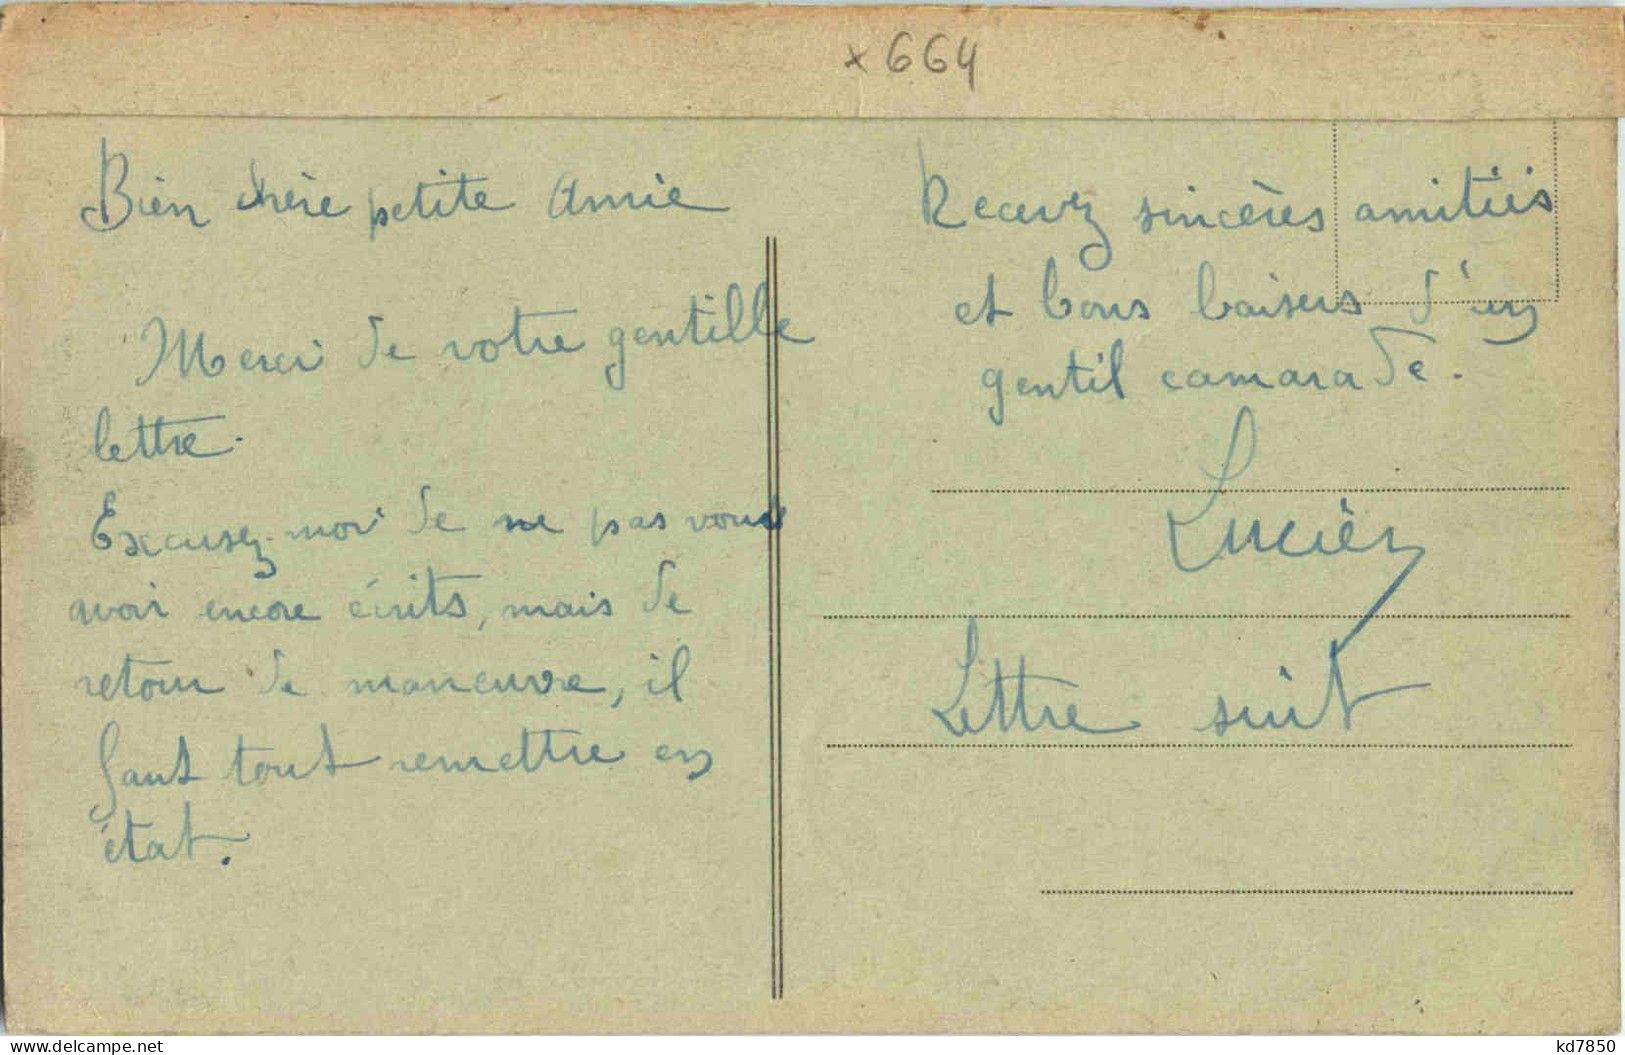 x 664
Bien chère petite Amie
Merci de votre gentille
lettre.
Excusez-moi de ne pas vous
avoir encore écrits, mais de
retour de maneuvre, il
faut tout remettre en
état.
Recevez sincères amitiés
et bons baisers d'un
gentil camarade.
Lucien
Lettre suit
kd7850